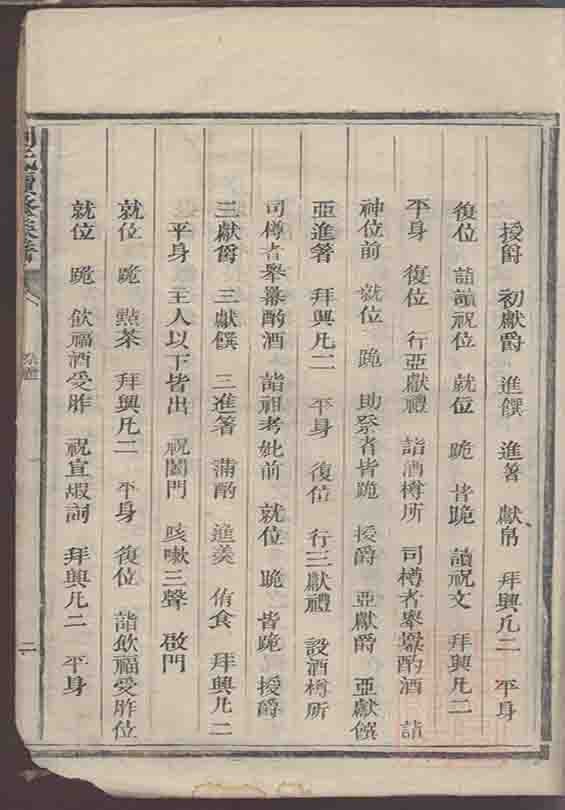 授爵 初獻爵 進饌 進箸 獻帛 拜興凡二 平身
復位 詣讀祝位 就位 跪 皆跪 讀祝文 拜興凡二
平身 復位 行亞獻禮 詣酒樽所 司樽者舉冪酌酒 詣
神位前 就位 跪 助祭者皆跪 授爵 亞獻爵 亞獻饌
亞進箸 拜興凡二 平身 復位 行三獻禮 設酒樽所
司樽者舉冪酌酒 詣祖考妣前 就位 跪 皆跪 授爵
三獻爵 三獻饌 三進箸 滿酌 進羹 侑食 拜興凡二
平身 主人以下皆出 祝闔門 咳嗽三聲 啟門
就位 跪 點茶 拜興凡二 平身 復位 詣飲福受胙位
就位 跪 飲福酒受胙 祝宣嘏詞 拜興凡二 平身
二